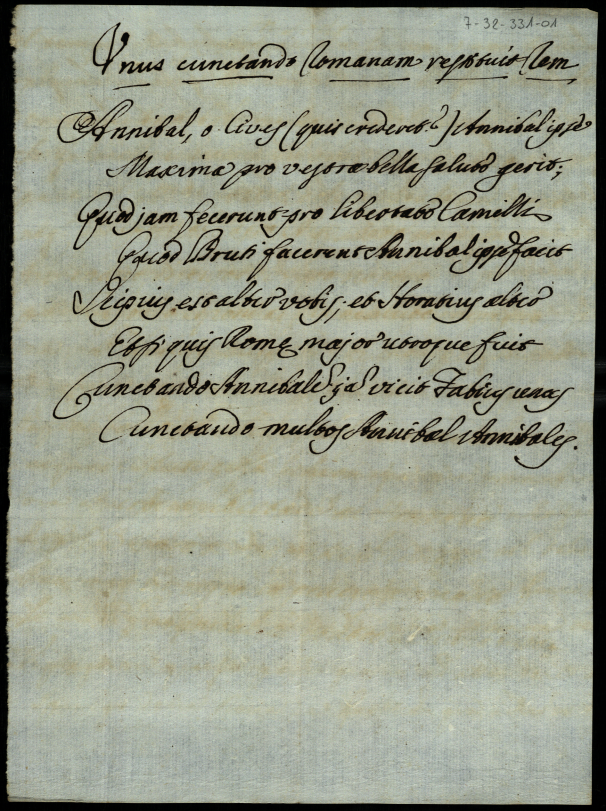 7-32-331-01
Unus cunctando Romanam restituit Rem
Annibal, o Cives (quis crederet?) Annibal ipse
Maxima pro vestra bella salute gerit;
Quod jam fecerunt pro libertate Camilli
Quod Bruti facerent Annibal ipse facit
Scipius est alter vobis; et Horatius alter
Et si quis Rome major utroque fuit
Cunctando Annibale vicit Fabius unus
Cunctando multos Annibal Annibales.